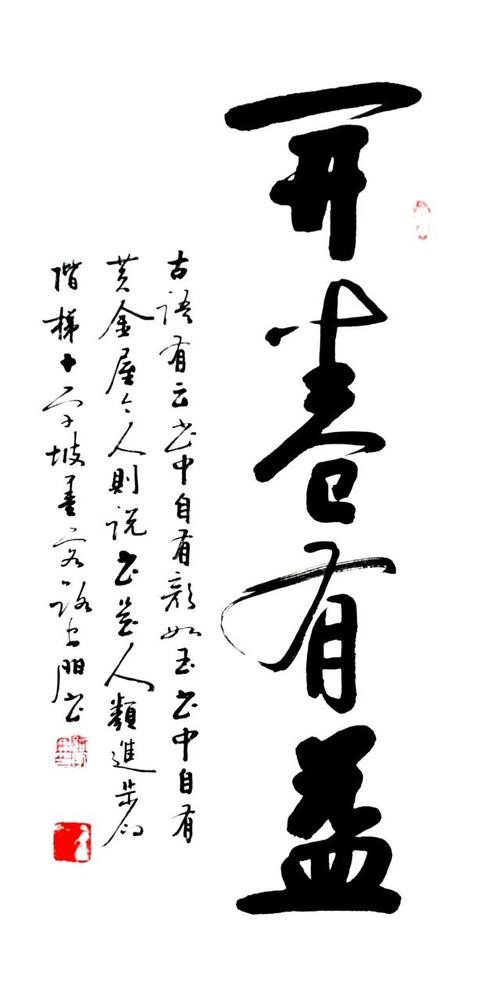 开卷有益
古语有云书中自有颜如玉书中自有
黄金屋今人则说书是人类进步的
阶梯十字坡墨客路 阳书